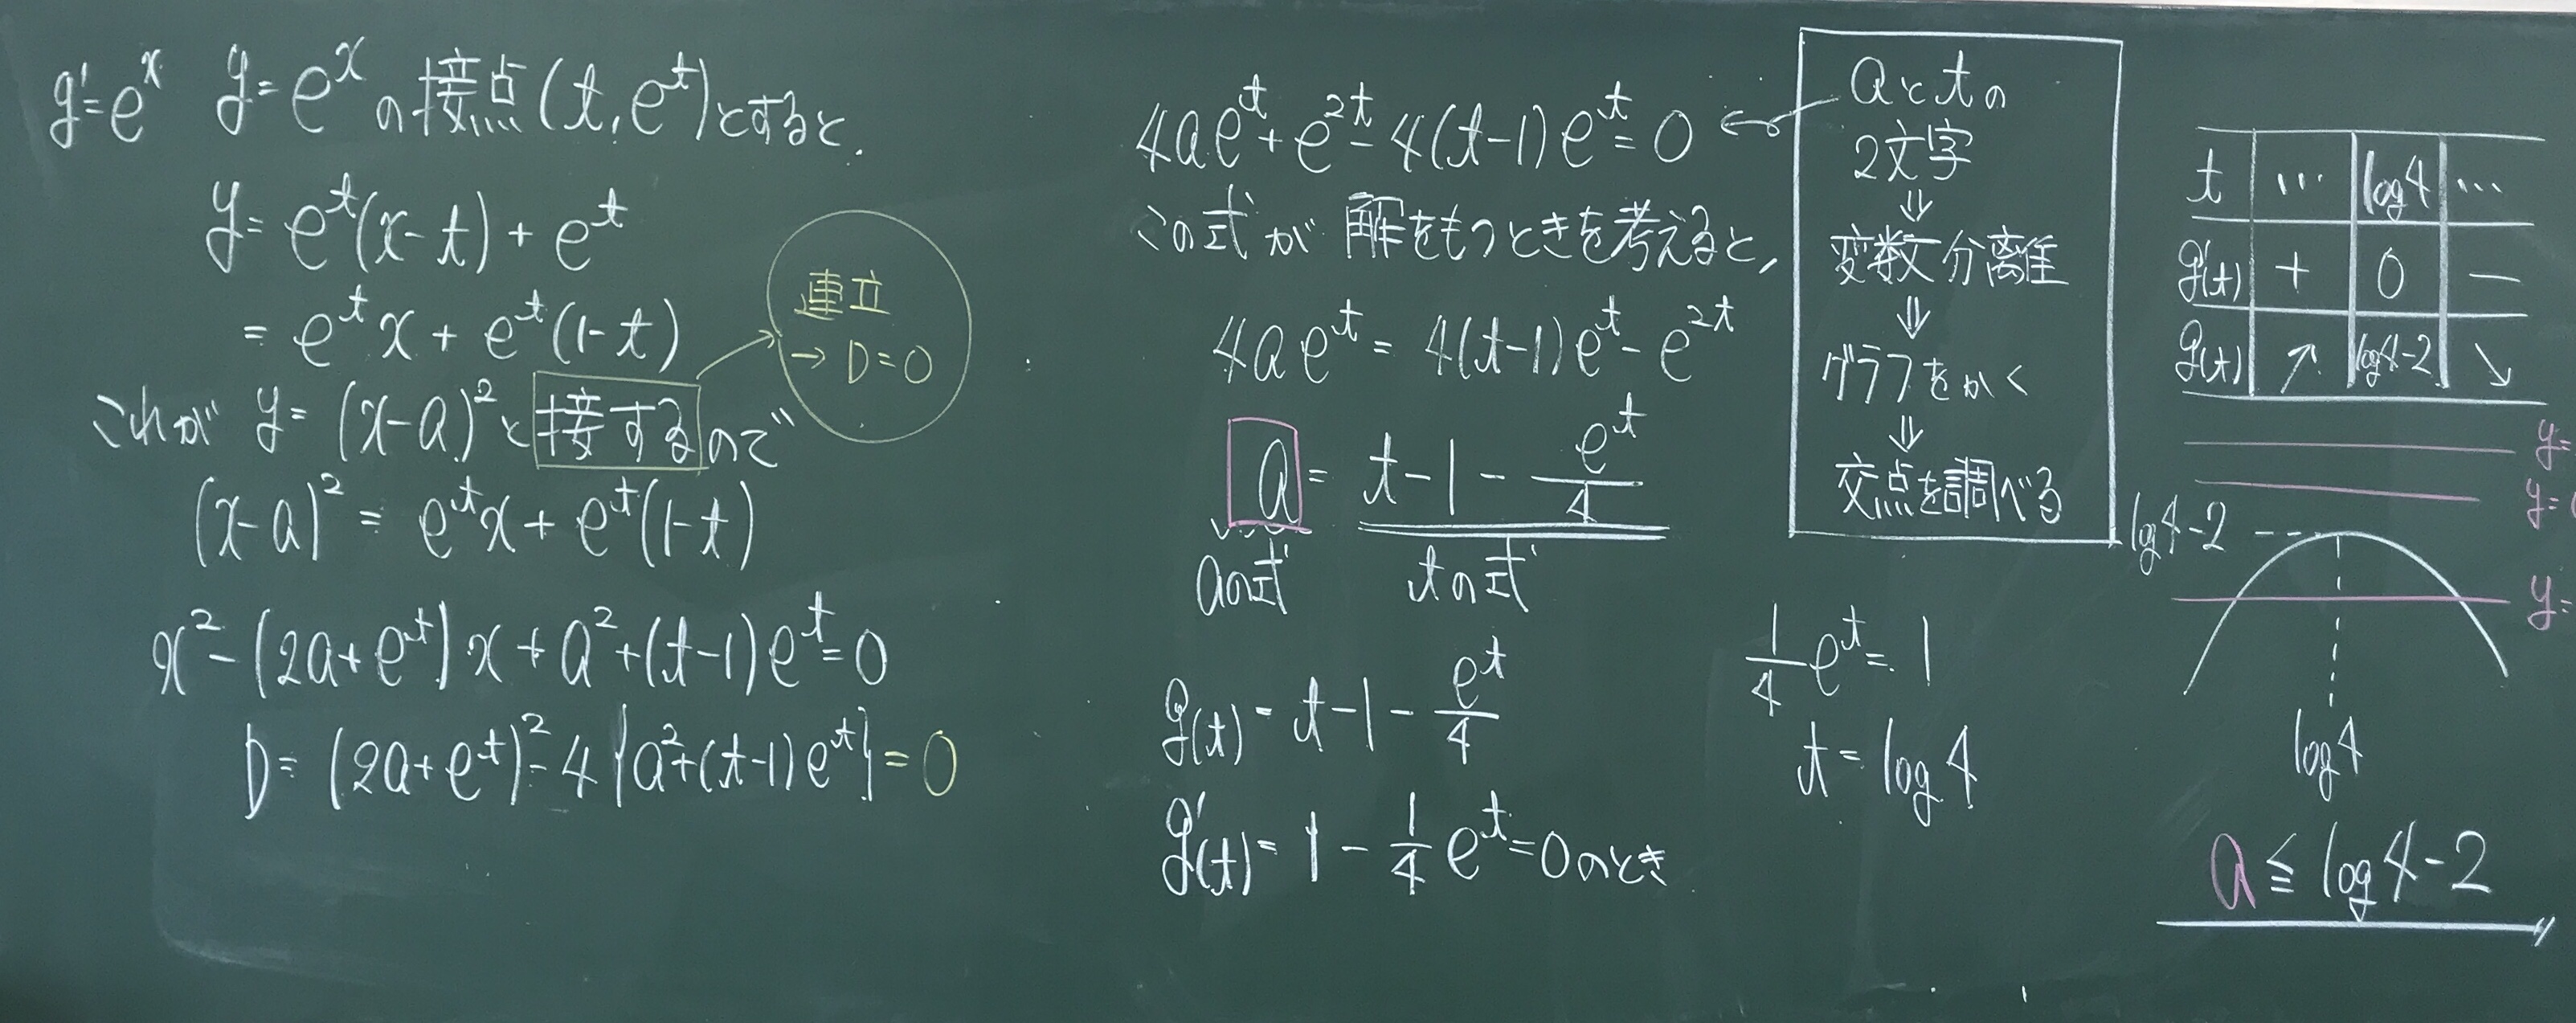 y'=e^x y=e^xの接点(t,e^t)とすると,
y=e^t(x-t)+e^t
=e^t x+e^t(1-t)
これが y=(x-a)^2と接するので
連立
→D=0
(x-a)^2=e^t x+e^t(1-t)
x^2-(2a+e^t)x+a^2+(t-1)e^t=0
D=(2a+e^t)^2-4{a^2+(t-1)e^t}=0
4ae^t+e^{2t}-4(t-1)e^t=0 ←
この式が 解をもつときを考えると,
4ae^t=4(t-1)e^t-e^{2t}
a=t-1-e^t/4
aの式 tの式
g(t)=t-1-e^t/4
g'(t)=1-1/4 e^t=0のとき
1/4 e^t=1
t=log4
aとtの
2文字
⇓
変数分離
⇓
グラフをかく
⇓
交点を調べる
t … log4 …
g'(t) + 0 −
g(t) ↗ log4-2 ↘
y=
y=
log4-2
y=
log4
a≦log4-2